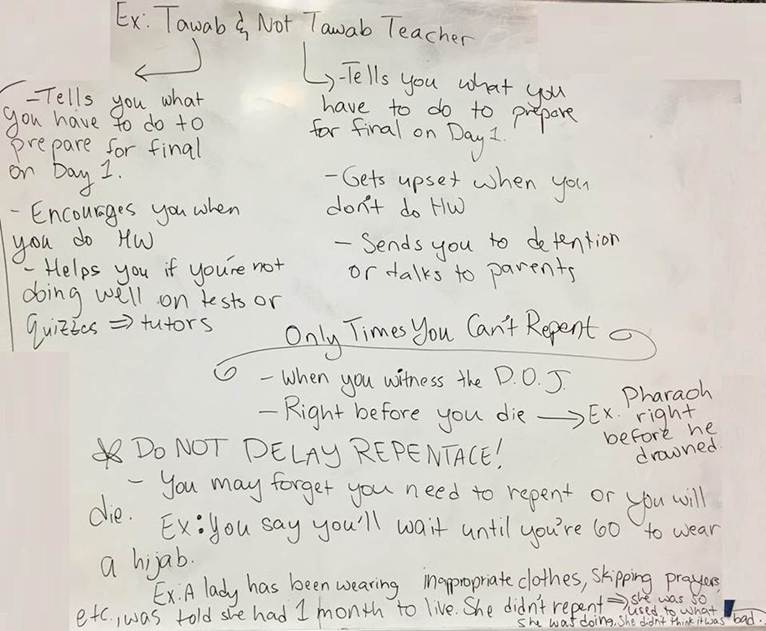 Ex: Tawab & Not Tawab Teacher
-Tells you what
you have to do to
prepare for final
on Day 1.
- Encourages you when
you do HW
- Helps you if you're not
doing well on tests or
quizzes ⇒ tutors
-Tells you what you
have to do to prepare
for final on Day 1.
-Gets upset when you
don't do HW
- Sends you to detention
or talks to parents
Only Times You Can't Repent
- When you witness the D.O.J.
- Right before you die → Ex. Pharaoh
right
before he
drowned.
* DO NOT DELAY REPENTACE!
- You may forget you need to repent or you will
die.
Ex: You say you'll wait until you're 60 to wear
a hijab.
Ex: A lady has been wearing inappropriate clothes, skipping prayers,
etc., was told she had 1 month to live. She didn't repent ⇒ she was so
used to what
she was doing, she didn't think it was bad.